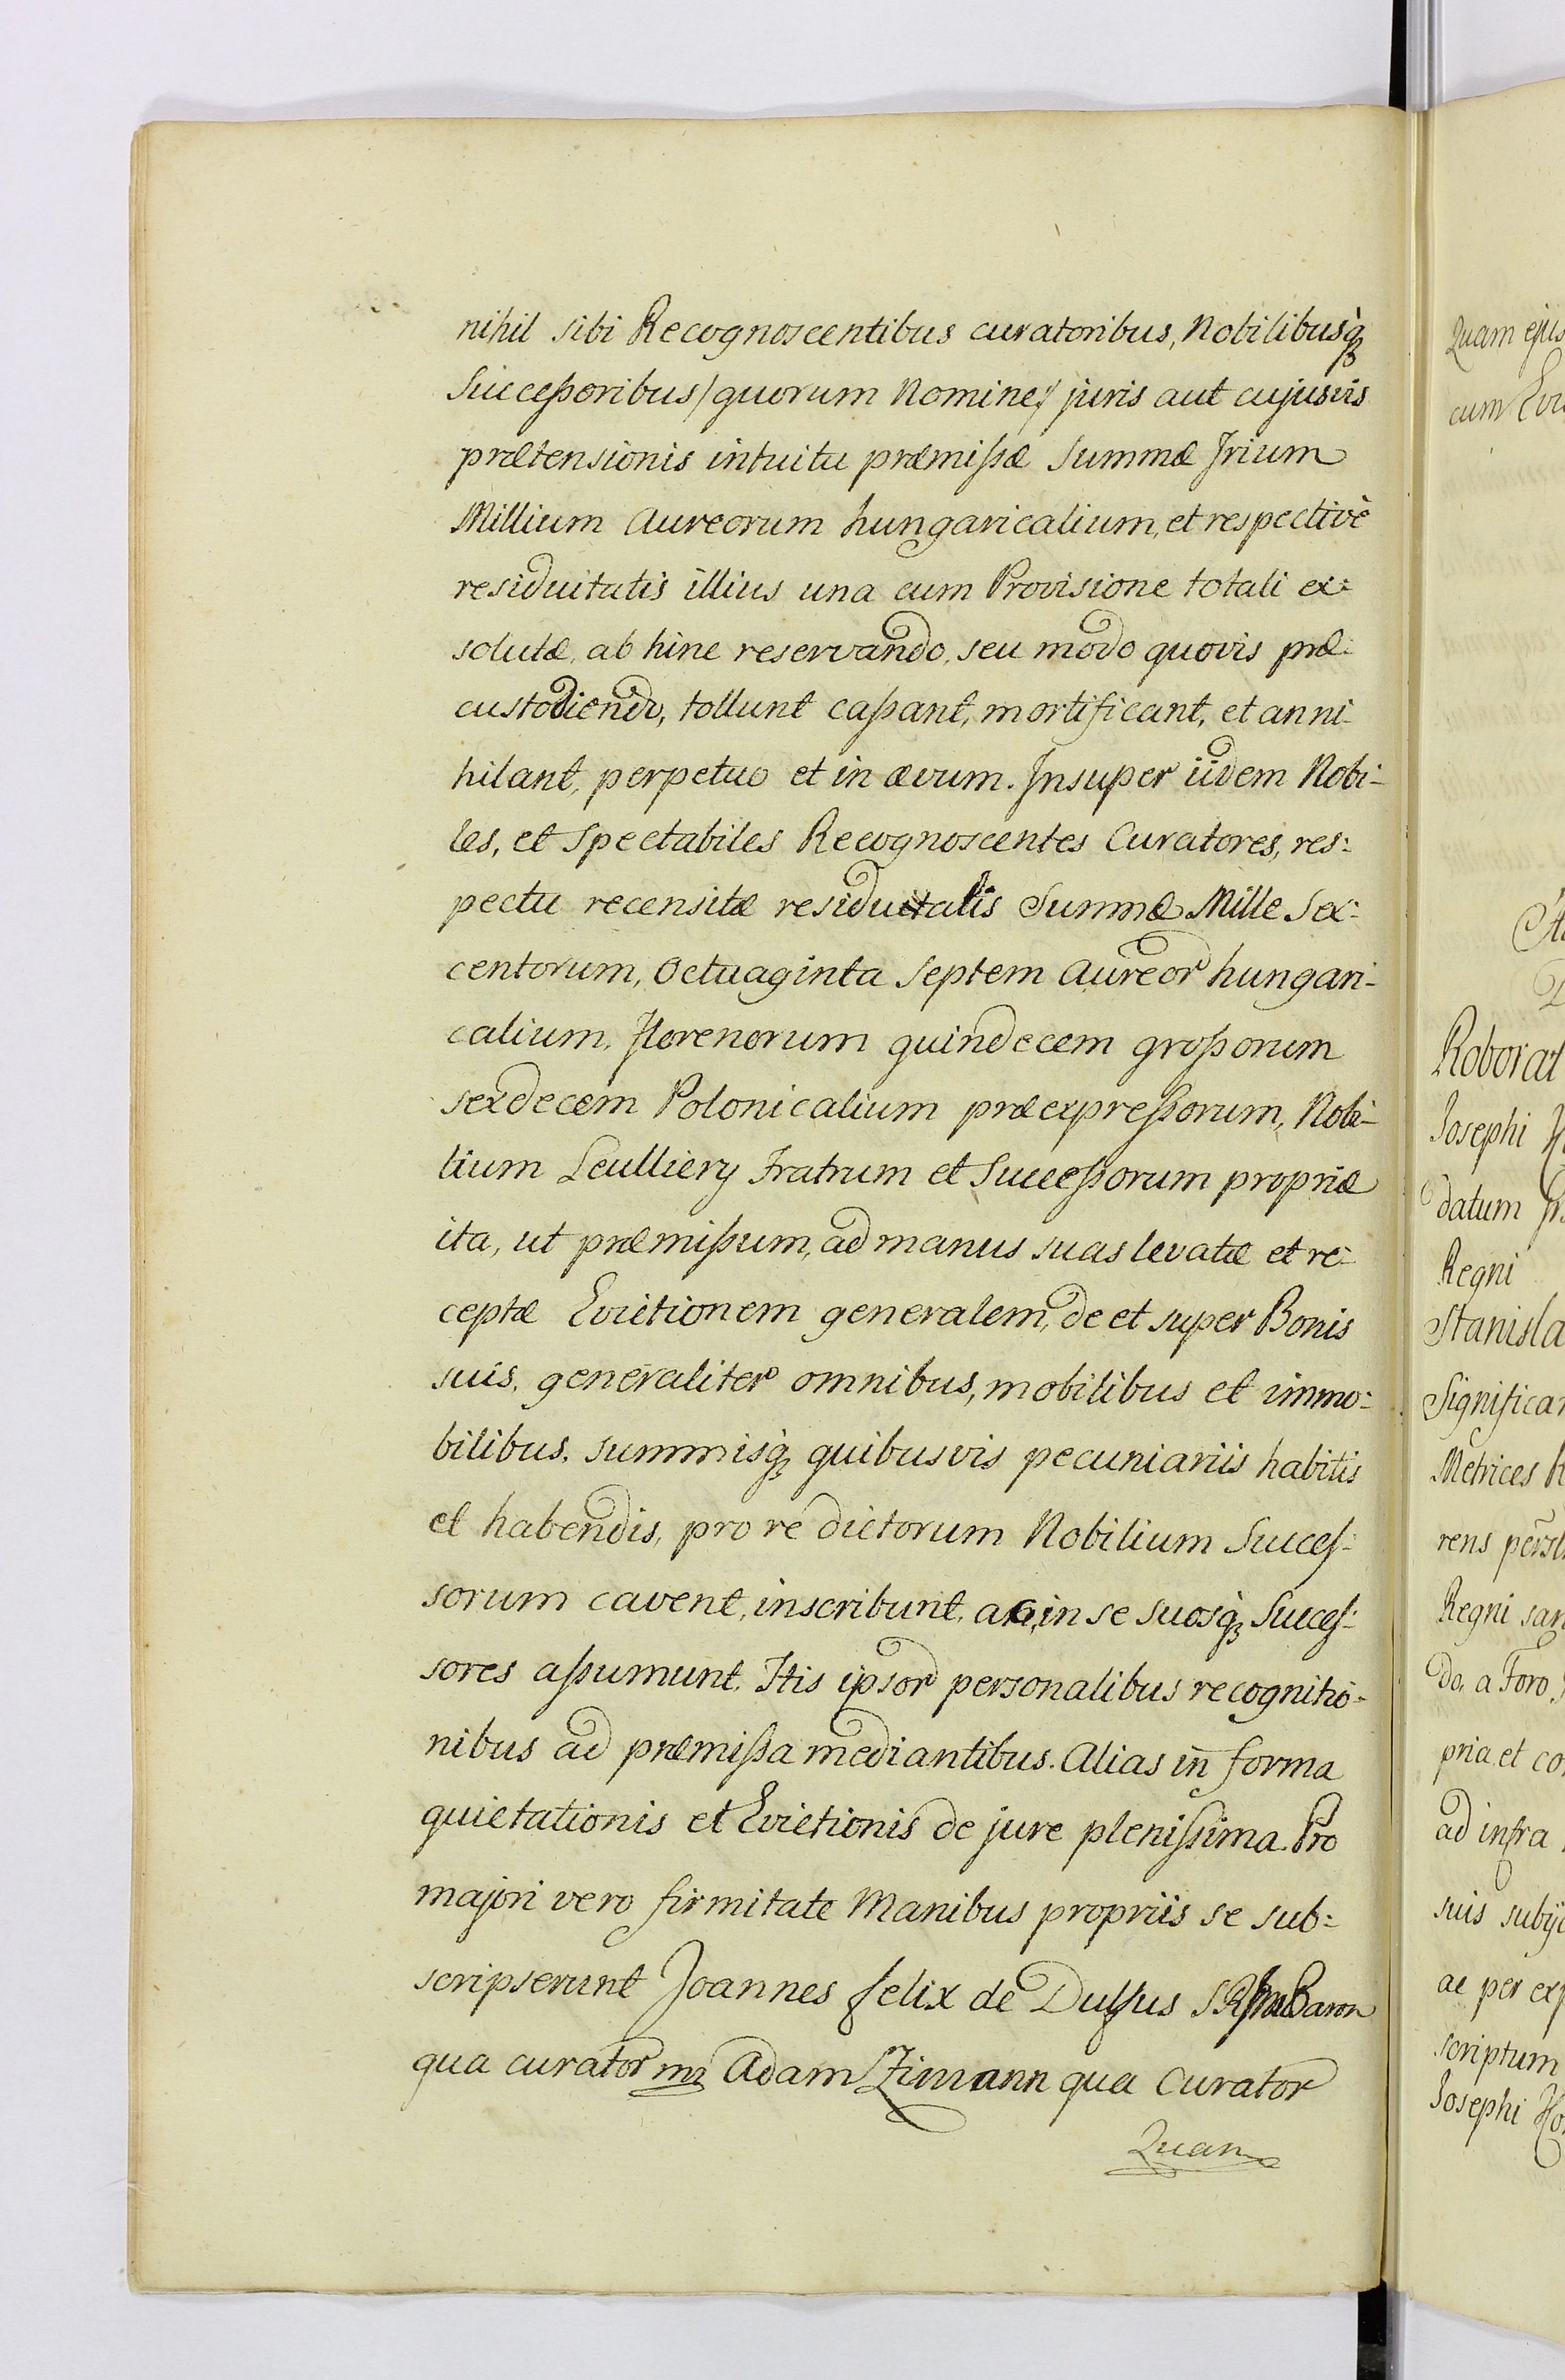 nihil sibi Recognoscentibus curatoribus, Nobilibusq̀ꝫ
Successoribus /quorum Nomine/ juris aut cujusvis
prætensionis intuitu præmissæ Summæ Trium
Millium Aureorum hungaricalium, et respectivè
residuitatis illius una cum Provisione totali ex:
solutæ, ab hinc reservando, seu modo quovis præ:
custodiendo, tollunt cassant, mortificant, et anni-
hilant, perpetuo et in ævum. Insuper iidem Nobi-
les, et Spectabiles Recognoscentes Curatores, res:
pectu recensitæ residuitatis Summæ Mille Sex:
centorum, Octuaginta Septem Aureor hungari-
calium, florenorum quindecem grossorum
sexdecem Polonicalium præexpressorum, Nobi-
lium Leulliery Fratrum et Successorum propriæ
ita, ut præmissum, ad manus suas levatæ et re:
ceptæ Evictionem generalem, de et super Bonis
suis, generaliter omnibus, mobilibus et immo:
bilibus, summisq̀ꝫ quibusvis pecuniariis habitis
et habendis, pro re dictorum Nobilium Succes:
sorum cavent, inscribunt, ac, in se suosq̀ꝫ Succes:
sores assumunt. Itis ipsor personalibus recognitio-
nibus ad præmissa mediantibus. Alias in forma
quietationis et Evictionis de jure plenissima. Pro
majori vero firmitate Manibus propriis se sub:
scripserunt Joannes felix de Dulfus Baron
qua curator mp Adam Zimann qua Curator
Quam
Quam ejus
cum
Roborat
Josephi
datum
Regni
Stanisla
Significa
Metrices
rens
Regni
do. a Foro
pria et co
ad infra
suis
ac per exp
scriptum
Josephi